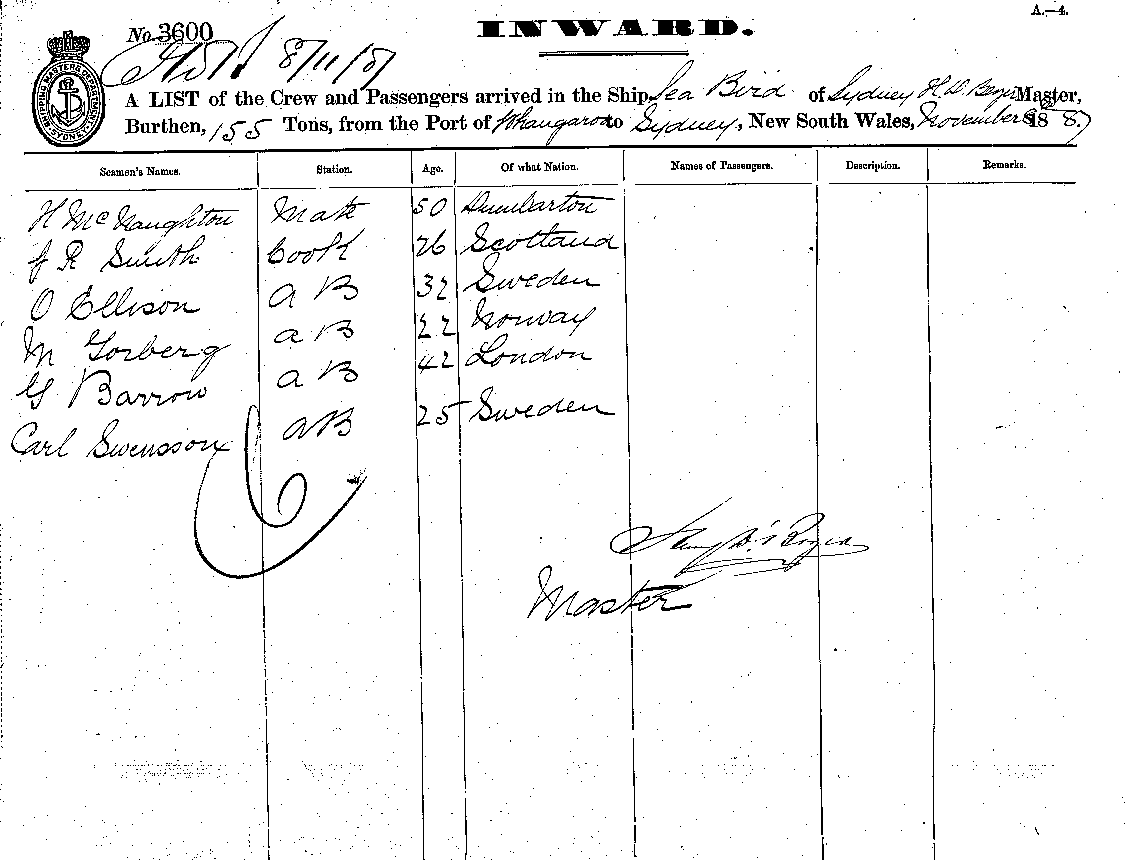 A.—4.
No. 3600
INWARD.
8/11/87
A LIST of the Crew and Passengers arrived in the Ship Sea Bird of Sydney H. D. Master,
Burthen, 155 Tons, from the Port of Whangaroa to Sydney, New South Wales, November 8 1887
SHIPPING MASTERS DEPARTMENT SYDNEY
Seamen's Names. Station. Age. Of what Nation. Names of Passengers. Description. Remarks.
H McNaughton Mate 50 Dumbarton
J R Smith Cook 26 Scotland
O Ellison A B 32 Sweden
M Torberg A B 22 Norway
G Barrow A B 42 London
Carl Swensson A B 25 Sweden
Master